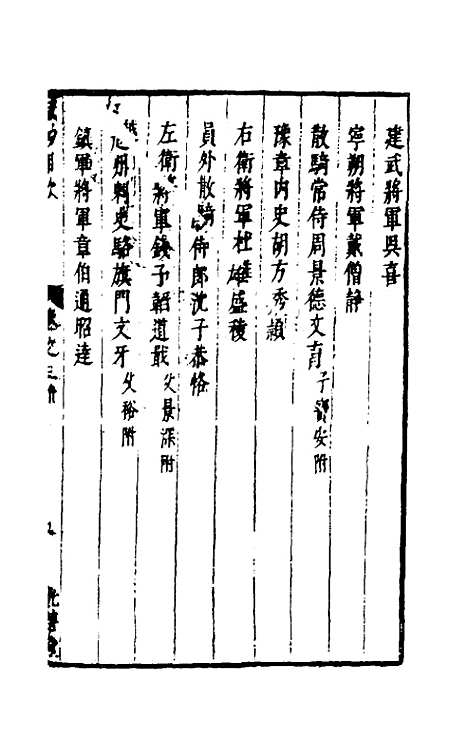 建武將軍吳喜
寧朔將軍戴僧靜
散騎常侍周景德文育子寶安附
豫章內史胡方秀穎
右衛將軍杜雄盛稜
員外散騎侍郎沈子恭恪
左衛將軍錢子韜道戢父景深附
州刺史駱旗門文牙父裕附
鎮軍將軍章伯通昭達
目次
卷之三